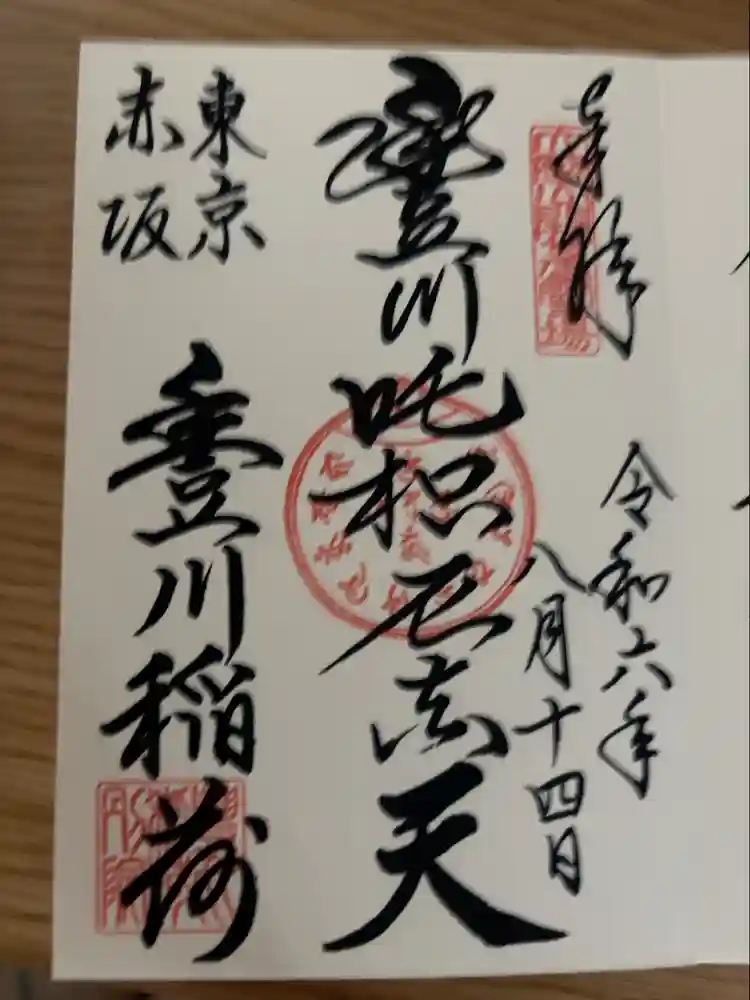 奉拝
令和六年
八月十四日
豐川吒枳尼真天
東京
赤坂
豊川稲荷